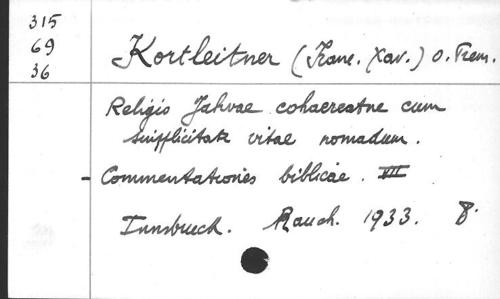 315
69
36
Kortleitner (Franc. Xav.) O. Prem.
Religio Jahvae cohaereatne cum
simplicitate vitae nomadum.
- Commentationes biblicae. VII
Innsbruck. Rauch. 1933. 8.